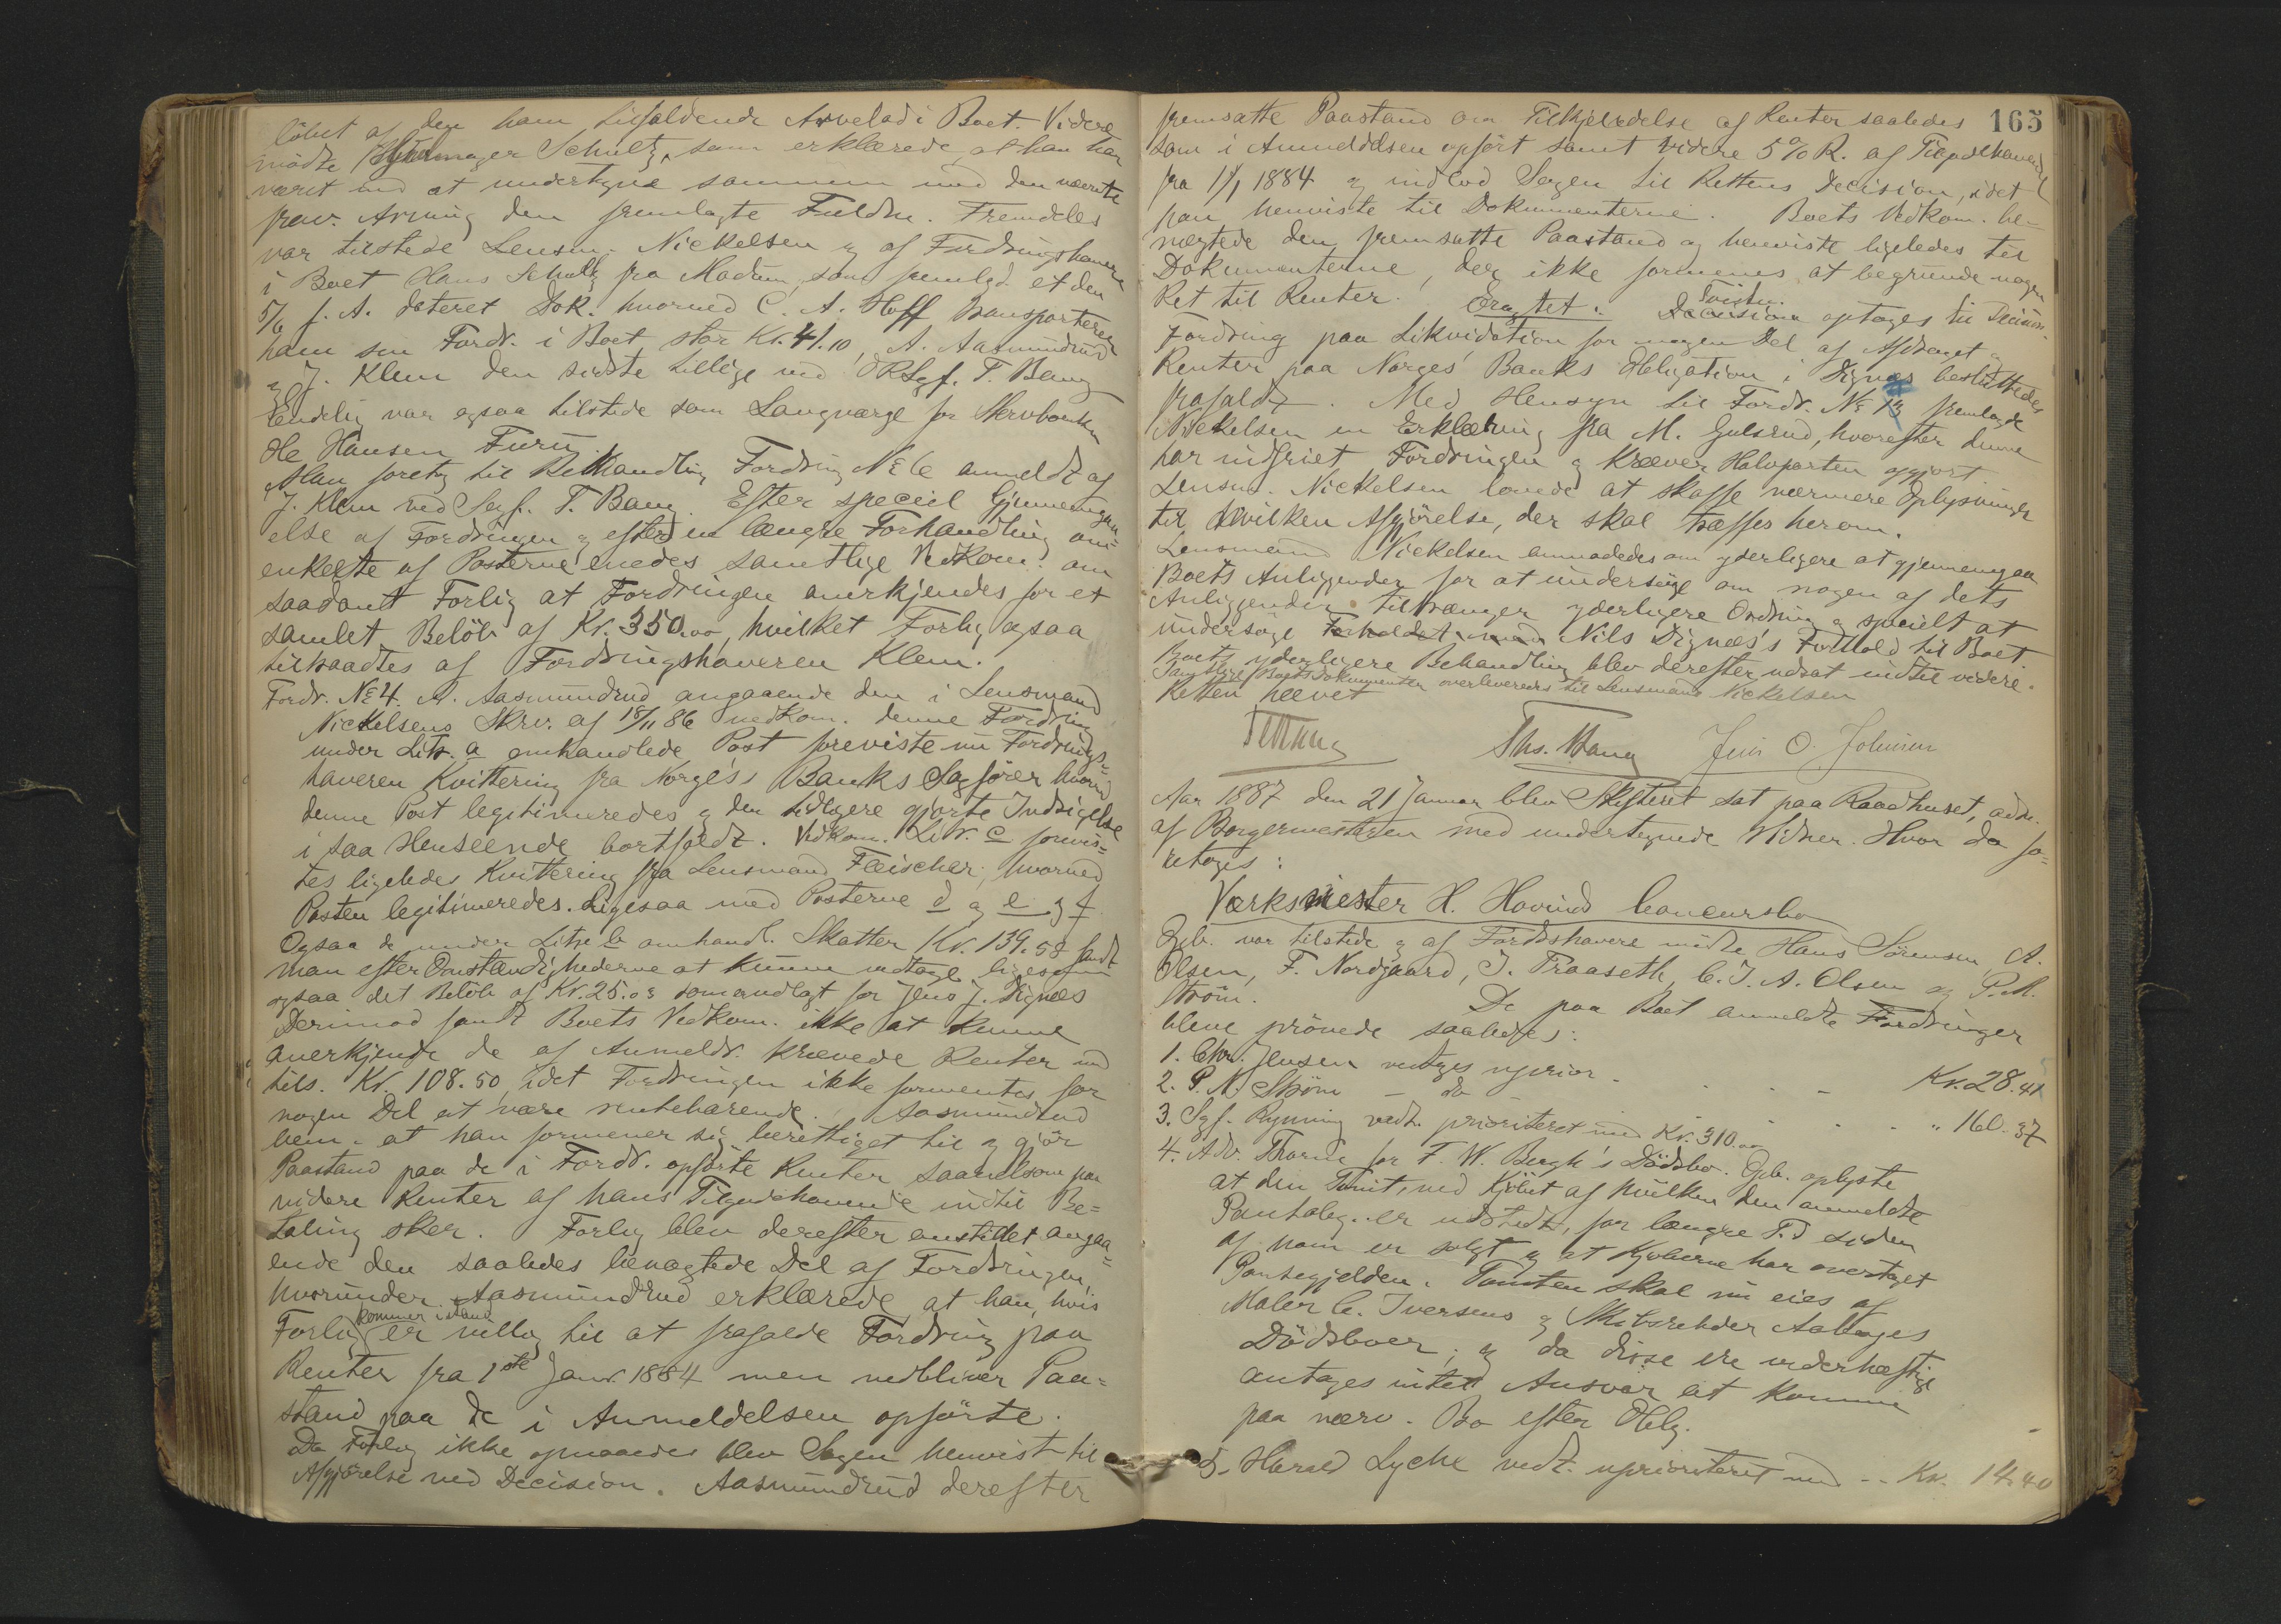 löbet af den ham tilfaldende Arvelod i Boet. Videre
mödte Hjulmager Schultz, som erklærede, at han har
været med at undertegne sammen med den nævnte
frav. Arving den fremlagte Fuldm. Fremdeles
var tilstede Lensm. Nickelsen og af Fordringshavere
i Boet Hans Schultz fra Modum, som fremlod et den
5/6 f. A. dateret Dok. hvorved C. A. Hoff transporterer
ham sin Fordr. i Boet stor Kr. 41.10, A. Aasmundrud
og J. Klem den sidste tillige med ORSgf. T. Bang
Endelig var ogsaa tilstede som Laugværge for
He Hansen Furu.
Man foretog til Behandling Fordring No 6 anmeldt af
J. Klem ved Sagf. T. Bang. Efter speciel Gjennemgaa-
else af Fordringen og efter en længre Forhandling om
enkelte af Posterne enedes samtlige Vedkom. om
saadant Forlig at Fordringen anerkjendes for et
samlet Belöb af Kr. 350.00, hvilket Forlig ogsaa
tiltraadtes af Fordringshaveren Klem.
Fordr. No 4. A. Aasmundrud angaaende den i Lensmand
Nickelsens Skrv. af 18/11 86 vedkom. denne Fordring
under Litr. a omhandlede Post foreviste nu Fordrings=
haveren Kvittering fra Norges Banks Sagförer hvorved
denne Post legitimeredes og den tidligere gjorte Indsigelse
i saa Henseende bortfaldt. Vedkom. Litr. c forevis=
tes ligeledes Kvittering fra Lensmand Fleischer, hvorved
Posten legitimeredes. Ligesaa med Posterne d og e og f
Ogsaa de under Litr b omhandl. Skatter Kr. 139.58 fandt
man efter Omstændighederne at kunne vedtage ligesom
ogsaa det Belöb af Kr. 25.03 som udlagt for Jens J. Dignæs
Derimod fandt Boets Vedkom. ikke at kunne
anerkjende de af Anmeldr. krævede Renter med
tils. Kr. 108.50, idet Fordringen ikke formentes for
nogen Del at være rentebærende. Aasmundrud
bem. at han formener sig berettiget til og gjör
Paastand paa de i Fordr. opförte Renter saavelsom paa
videre Renter af hans Tilgodehavende indtil Be=
taling sker. Forlig blev derefter anstillet angaa=
ende den saaledes benægtede Del af Fordringen,
hvorunder Aasmundrud erklærede, at han, hvis
kommer istand
Forlig er villig til at frafalde Fordring paa
Renter fra 1ste Janr. 1884 men vedbliver Paa=
stand paa de i Anmeldelsen opförte.
Da Forlig ikke opnaaedes blev Sagen henvist til
Afgjörelse ved Decision. Aasmundrud derefter
165
fremsatte Paastand om Tilkjendelse af Renter saaledes
som i Anmeldelsen opfört samt videre 5 % R. af Tilgodehavendet
fra 1/1 1884 og indlod Sagen til Rettens Decision, idet
han henviste til Dokumenterne. Boets Vedkom. be-
nægtede den fremsatte Paastand og henviste ligeledes til
Dokumenterne, der ikke formenes at begrunde nogen
Ret til Renter. Eragtet: Decision Tvisten optages til Decision.
Fordring paa Likvidation for nogen Del af Afdraget og
Renter paa Norges Banks Obligation i Dignæs besluttedes
frafaldt. Med Hensyn til Fordr. No 13 fremlagde
Nickelsen en Erklæring fra M. Gulsrud, hvorefter denne
har indfriet Fordringen og kræver Halvparten opgjort
Lensm. Nickelsen lovede at skaffe nærmere Oplysninger
til hvilken Afgjörelse, der skal træffes herom.
Lensmand Nickelsen anmodedes om yderligere at gjennemgaa
Boets Anliggender for at undersöge om nogen af dets
Anliggender tiltrænger yderligere Ordning og specielt at
undersöge Forholdet med Nils Dignæs's Forhold til Boet.
Boets yderligere Behandling blev derefter udsat indtil videre.
Samtlige Boets Dokumenter overleveredes til Lensmand Nickelsen
Retten hævet
Ths. Bang Jens O. Johnsen
Aar 1887 den 21 Januar blev Skifteret sat paa Raadhuset, adm.
af Borgermesteren med undertegnede Vidner. Hvor da fo=
retoges:
Værksmester H. Hovinds Concursbo
Gjb. var tilstede og af Fordrshavere mödte Hans Sörensen, A.
Olsen, F. Nordgaard, J. Praaseth, C. J. A. Olsen og P. M.
Ström. De paa Boet anmeldte Fordringer
bleve prövede saaledes:
1. Chr. Jensen vedtages uprior - Kr. 28.41
2. P. M. Ström - do - " 160.37
3. Sgf. Rynning vedt. prioriteret med Kr. 310.00
4. Adv. Thorne for F. W. Bugh's Dödsbo. Gjb. oplyste
at den Tomt, ved Kjöbet af hvilken den anmeldte
Pantoblg. er udstedt, for længre Tid siden
af ham er solgt og at Kjöberne har overtaget
Pantegjelden. Tomten skal nu eies af
Maler C. Iversens og Skibsreder Aabyes
Dödsboer, og da disse ere vederhæftige
antages intet Ansvar at komme
paa nærv. Bo efter Oblg.
5. Harald Lyche vedt. uprioriteret med -- Kr. 14.40